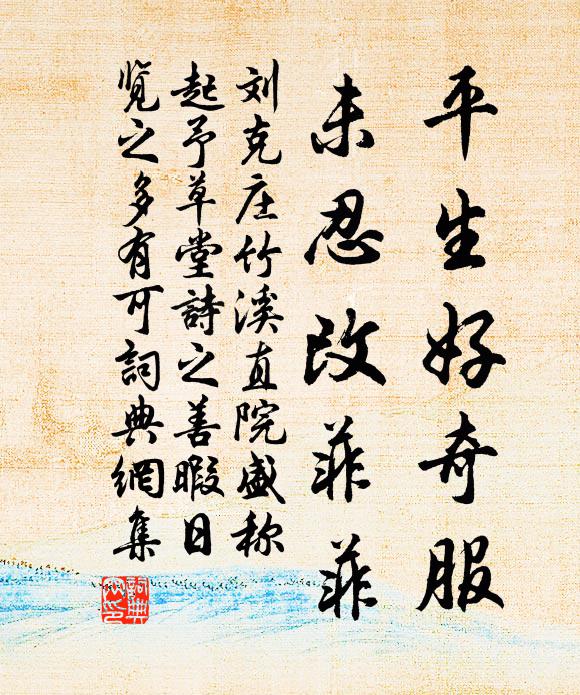 平生好奇服
未忍改菲菲
刘克庄竹溪直院盛称
起予草堂詩之善暇日
览之多有可詞典網集